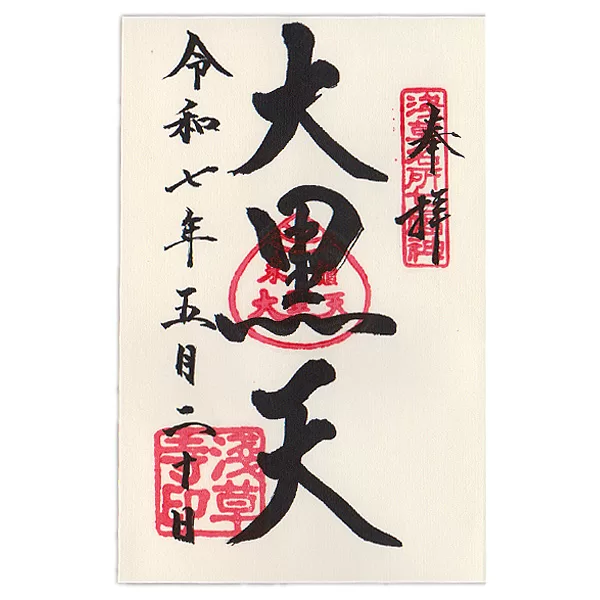 奉拝
浅草名所七福神
大黒天
大黒天
令和七年五月二十日
浅草寺印